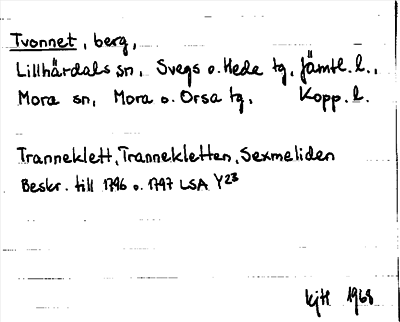 Tvonnet, berg,
Lillhärdals sn, Svegs o. Hede tg, Jämtl. l.,
Mora sn, Mora o. Orsa tg, Kopp. l.
Tranneklett, Trannekletten, Sexmeliden
Beskr. till 1796 o. 1797 LSA Y23
KjH 1968